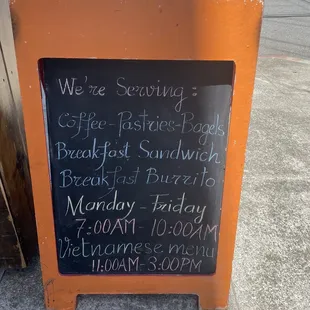 We're Serving :
Coffee - Pastries - Bagels
Breakfast Sandwich
Breakfast Burrito
Monday - Friday
7:00AM - 10:00AM
Vietnamese menu
11:00AM - 3:00PM